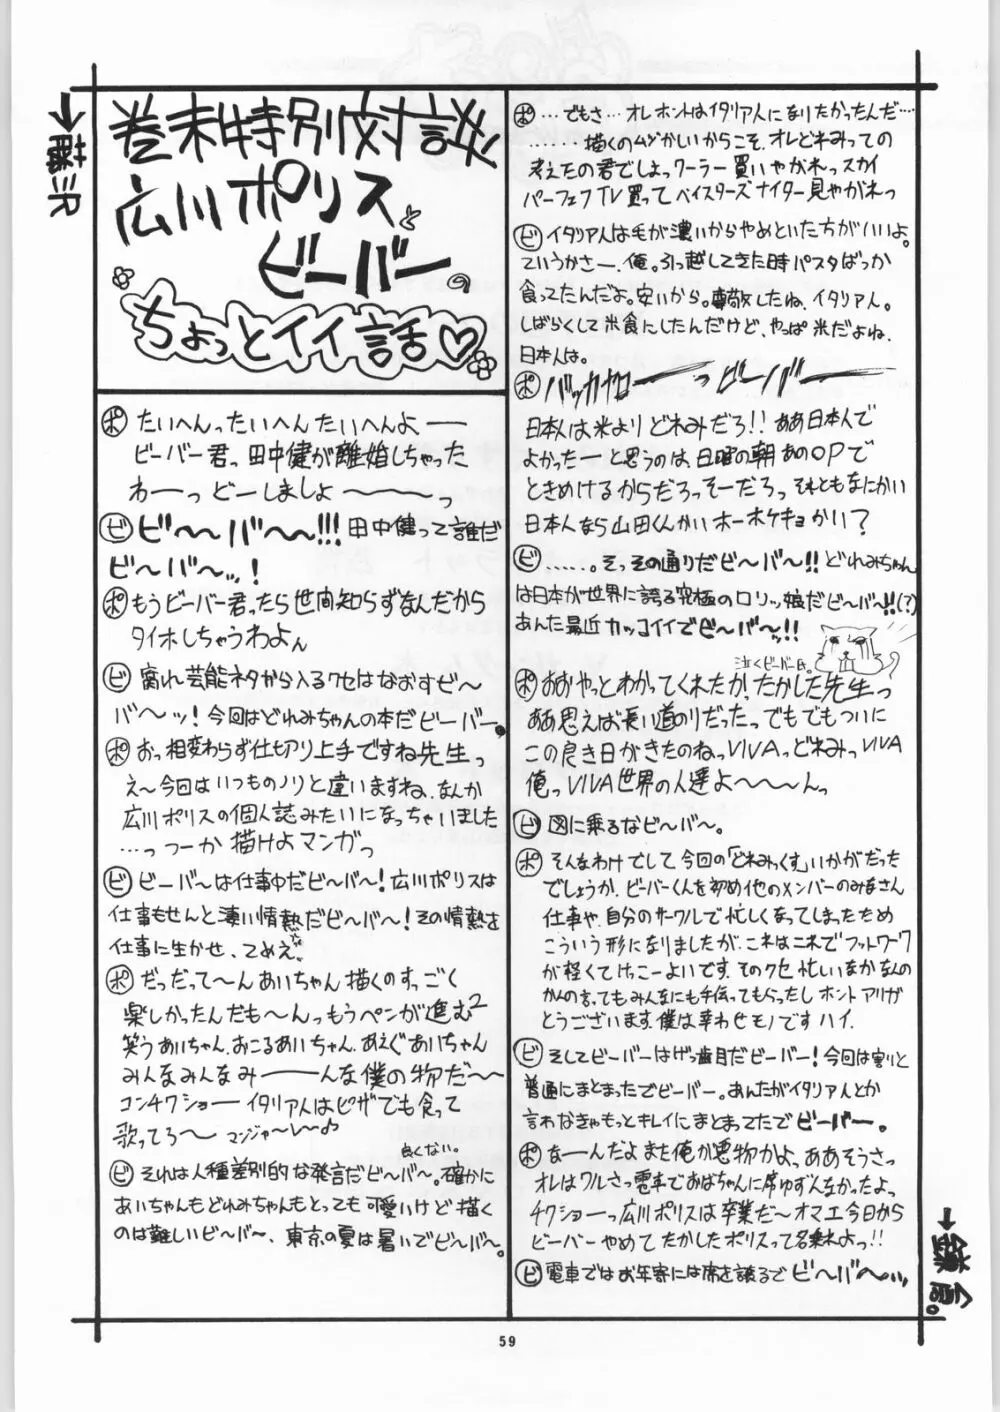 巻末特別対談!
広川ポリスと
ビーバーの
ちょっとイイ話♡
→藤沢
ポ たいへんったいへんたいへんよーー
ビーバー君っ田中健が離婚しちゃった
わーーっどーしましょ〜〜〜っ
ビ ビ〜〜バ〜〜!!!田中健って誰だ
ビ〜バ〜ッ!
ポ もうビーバー君ったら世間知らずなんだから
タイホしちゃうわよん
ビ 腐れ芸能ネタから入るクセはなおすビ〜
バ〜ッ!今回はどれみちゃんの本だビーバー。
ポ おっ相変わらず仕切り上手ですね先生っ
え〜今回はいつものノリと違いますね、なんか
広川ポリスの個人誌みたいになっちゃいました
…っつーか描けよマンガっ
ビ ビーバ〜は仕事中だビ〜バ〜!広川ポリスは
仕事もせんと凄い情熱だビ〜バ〜!その情熱を
仕事に生かせ、てめえ
ポ だっだって〜んあいちゃん描くのすっごく
楽しかったんだも〜んっもうペンが進む2
笑うあいちゃん、おこるあいちゃん、あえぐあいちゃん
みんなみんなみーーーんな僕の物だ〜〜
コンチクショーーイタリア人はピザでも食って
歌ってろ〜 マンジャ〜レ〜♪
良くない。
ビ それは人種差別的な発言だビ〜バ〜。確かに
あいちゃんもどれみちゃんもとっても可愛いけど描く
のは難しいビ〜バ〜、東京の夏は暑いでビ〜バ〜。
ポ …でもさ…オレホントはイタリア人になりたかったんだ…
……描くのムヅかしいからこそ、オレどれみっての
考えたの君でしょっクーラー買いやがれっスカイ
パーフェクTV買ってベイスターズナイター見やがれっ
ビ イタリア人は毛が濃いからやめといた方がいいよ。
ていうかさー、俺。引っ越してきた時パスタばっか
食ってたんだよ。安いから。尊敬したね、イタリア人。
しばらくして米食にしたんだけど、やっぱ米だよね、
日本人は。
ポ バッカヤローーっビーバーーー
日本人は米よりどれみだろ!!ああ日本人で
よかったーと思うのは、日曜の朝あのOPで
ときめけるからだろっそーだろっそれともなにかい
日本人なら山田くんかいホーホケキョかい?
ビ ……。そっその通りだビ〜バ〜!!どれみちゃん
は日本が世界に誇る究極のロリッ娘だビ〜バ〜!!(?)
あんた最近カッコイイでビ〜バ〜ッ!!
泣くビーバー氏。
ポ おおやっとわかってくれたかったかした先生っ
ああ思えば長い道のりだったっでもでもついに
この良き日がきたのねっVIVAっどれみっVIVA
俺っVIVA世界の人達よ〜〜〜んっ
ビ 図に乗るなビ〜バ〜。
ポ そんなわけでして今回の「どれみっくす」いかがだった
でしょうか、ビーバーくんを初め他のメンバーのみなさん
仕事や、自分のサークルで忙しくなってしまったため
こういう形になりましたが、これはこれでフットワーク
が軽くてけっこーよいです。そのクセ忙しいなかなんの
かんの言ってもみんなにも手伝ってもらったしホントアリガ
とうございます、僕は幸わせモノですハイ。
ビ そしてビーバーはげっ歯目だビーバー!今回は割りと
普通にまとまったでビーバー。あんたがイタリア人とか
言わなきゃもっとキレイにまとまってたでビーバー。
ポ なーんだよまた俺が悪物かよっああそうさっ
オレはワルさっ電車でおばちゃんに席ゆずんなかったよっ
チクショーっ広川ポリスは卒業だ〜オマエ今日から
ビーバーやめてたかしたポリスって名乗れよっ!!
ビ 電車ではお年寄には席を譲るでビ〜バ〜ッ
→鎌倉。
59